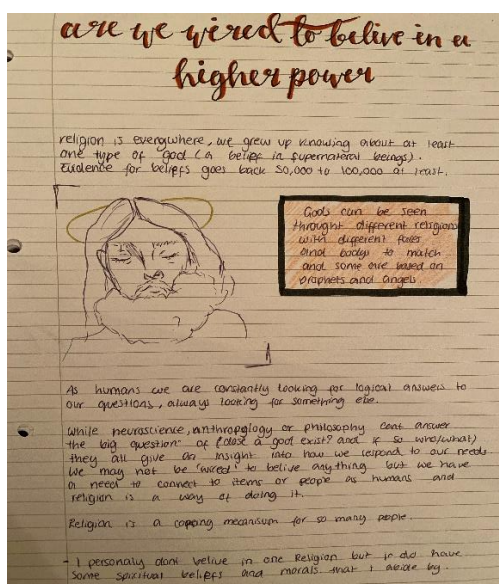 are we wired to belive in a
higher power
religion is everywhere, we grew up knowing about at least
one type of god (a belief in supernateral beings).
Evidence for beliefs goes back 50,000 to 100,000 at least.
Gods can be seen
throught different religions
with different faces
and bodys to match
and some are based on
prophets and angels
As humans we are constantly looking for logical answers to
our questions, always looking for something else.
While neuroscience, anthropology or philosophy cant answer
the big question of (dose a god exist? and if so who/what)
they all give an insight into how we respond to our needs
We may not be 'wired' to belive anything but we have
a need to connect to items or people as humans and
religion is a way of doing it.
Religion is a coping mecanisum for so many people.
- I personaly dont belive in one Religion but ir do have
some spiritual beliefs and morals that I abide by.